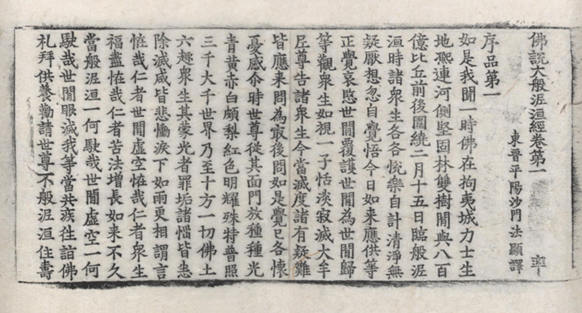 佛說大般泥洹經卷第一
東晉平陽沙門法顯譯
序品第一
如是我聞一時佛在拘夷城力士生
地熙連河側堅固林雙樹間與八百
億比丘前後圍繞二月十五日臨般泥
洹時諸衆生各各悅樂自計清淨無
疑厭想忽自覺悟今日如來應供等
正覺哀愍世間覆護世間為世間歸
等觀衆生如視一子恬淡寂滅大牟
尼尊告諸衆生今當滅度諸有疑難
皆應来問為最後問如是覺已各懷
憂慼今時世尊從其面門放種種光
青黃赤白頗梨紅色明耀殊特普照
三千大千世界乃至十方一切佛土
六趣衆生其蒙光者罪垢諸惱皆悉
除滅咸皆悲慟淚下如雨更相謂言
怪哉仁者世間虛空怪哉仁者衆生
福盡怪哉仁者苦法增長如来不久
當般泥洹一何駛哉世間虛空一何
駛哉世間眼滅我等當共疾往詣佛
礼拜供養勸請世尊不般泥洹住壽